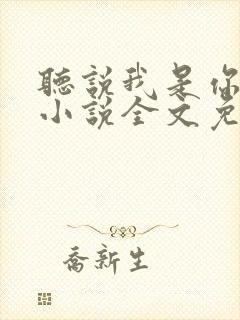 聽說我是你
小說全文免
喬新生